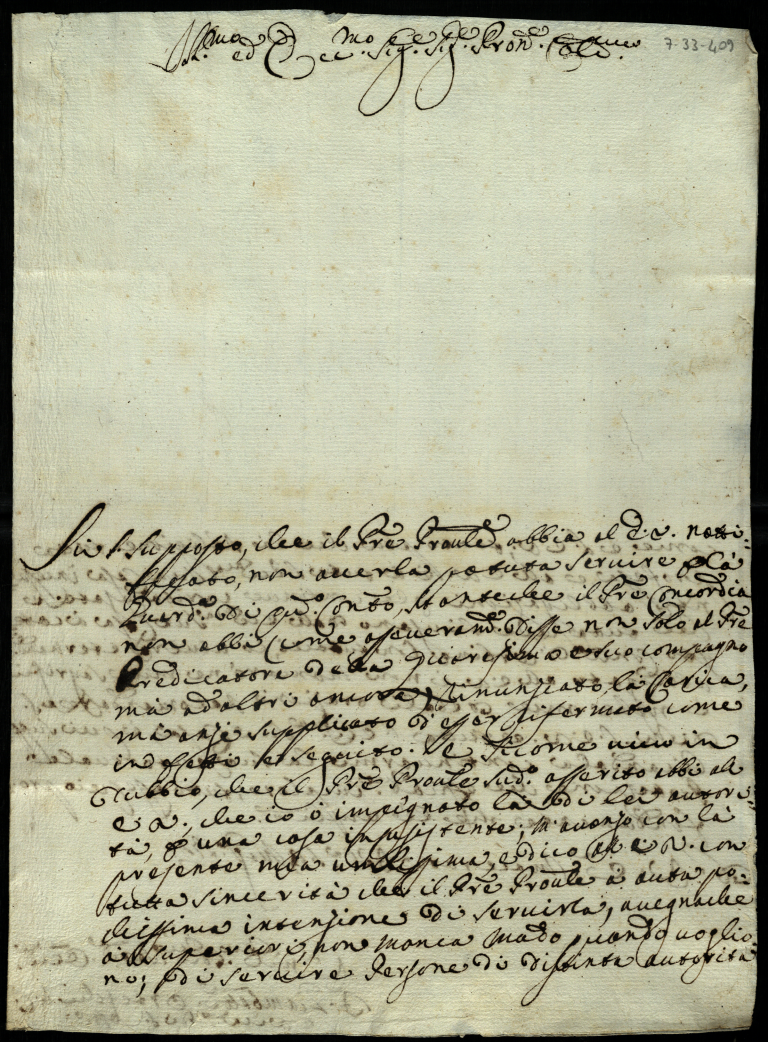 Ill.mo ed Ecc.mo Sig.e Sig.e Pron.e
7-33-409
supposto, che il Pre Prônle abbia al E.V. noti=
ficato, non averla potuta servire p la
Guard.a di q.to Con.to, stanteche il Pre Concordia
non abbi (come asseveran.e disse non solo al Pre
Predicatore della Quaresima e suo compagno
ma ad'altri ancora) rinunziato la Carica,
ma anzi supplicato d'esser rifermato come
indi è seguito: e siccome vivo in
dubbio, che il Pre Prônle sud.o asserito abbi al
E.V., che io ò impegnato la di lei autori=
tà, p una cosa insussistente; m'avanzo con la
presente mia umilissima, e dico al E.V. con
tutta sincerità che il Pre Prônle à auta po=
chissima intenzione di servirla, avegnache
a Superiori, non manca modo, quando voglio=
no, di servire Persone di distinta autorità